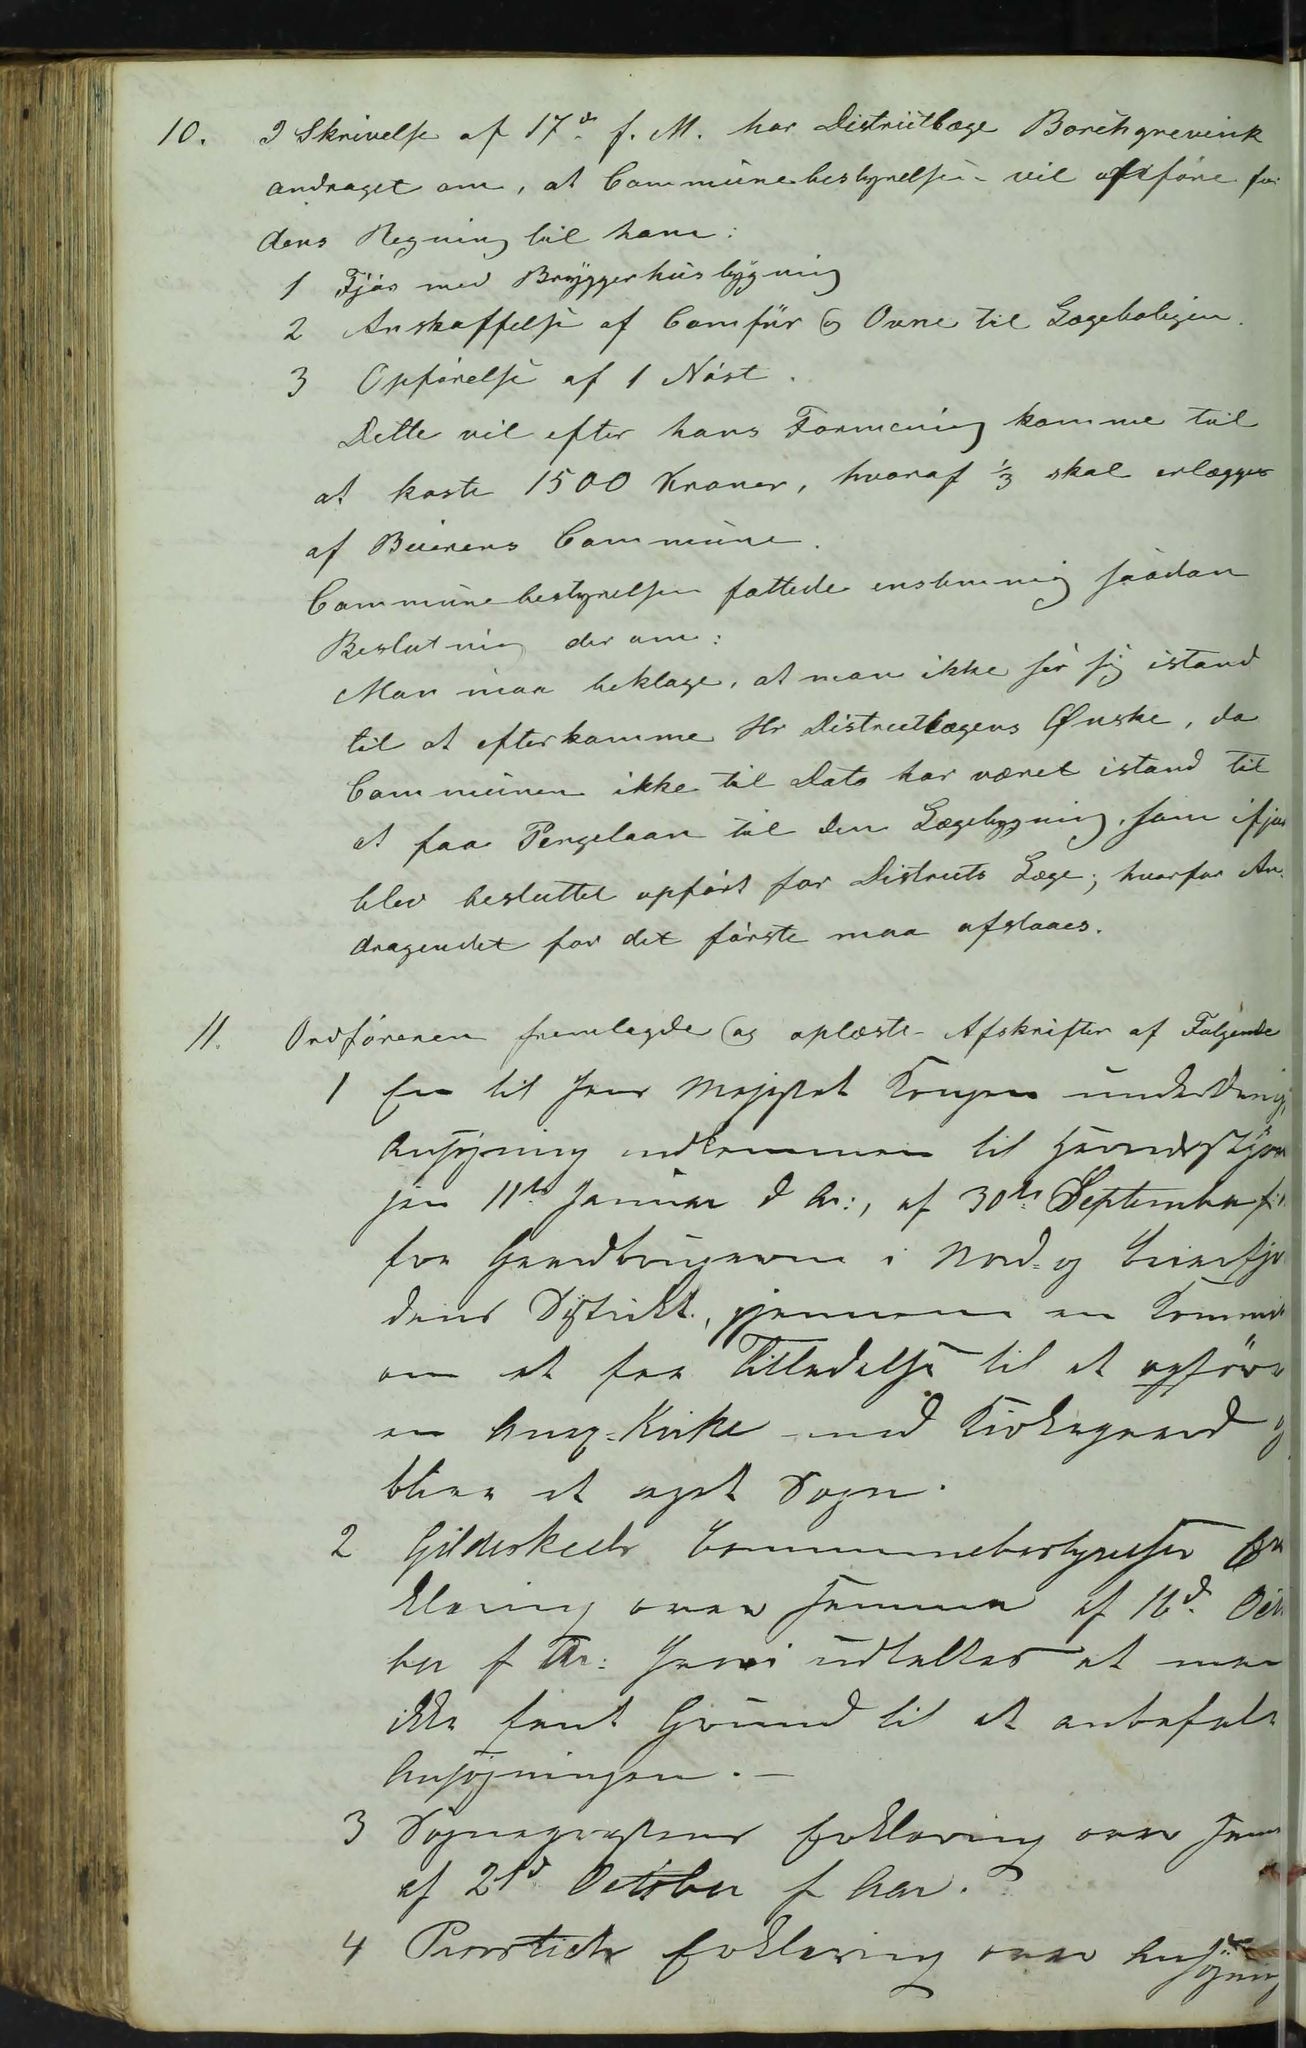 10. I Skrivelse af 17de f. M. har Districtlæge Borchgrevink
andraget om, at Communebestyrelsen vil opføre for
dens Regning til ham:
1 Fjøs med Bryggerhusbygning
2 Anskaffelse af Comfür og Ovne til Lægeboligen.
3 Opførelse af 1 Nøst.
Dette vil efter hans Formening komme til
at koste 1500 Kroner, hvoraf 1/3 skal erlægges
af Beierens Commune.
Communebestyrelsen fattede enstemmig saadan
Beslutning derom:
Man maa beklage, at man ikke ser sig istand
til at efterkomme Hr Districtlægens Ønske, da
Communen ikke til Dato har været istand til
at faa Pengelaan til den Lægebygning, som ifjor
blev besluttet opført for Districts Læge; hvorfor An-
dragendet for det første maa afslaaes.
11. Ordføreren fremlagde og oplæste Afskrifter af Følgende
1 En til Hans Majestæt Kongen underdanig
Ansøgning indkommen til
11te Januar d Ar:, af 30te September f.
fra Gaardbrugerne i Nord- og
dens Distrikt, gjennem en Kommi
om at faa Tilladelse til at opføre
en Anex-Kirke med Kirkegaard og
blive et eget Sogn.
2 Gildeskaals Communebestyrelses Er
klæring over samme af 16d. Octo
ber f Ar: hvori udtaltes at man
ikke fandt Grund til at anbefale
Ansøgningen. —
3 Sognepræstens Erklæring over samme
af 21d October f Aar.
4 Provstiets Erklæring over Ansøgning